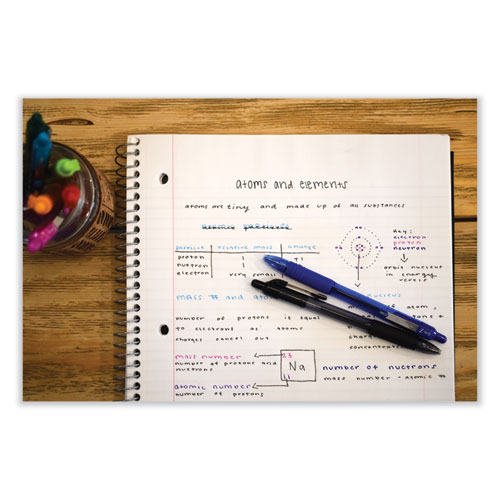 atoms and elements
atoms are tiny and made up of all substances
particle relative mass charge
proton 1 +1
neutron 1
electron very small
Key:
electron
proton
neutron
orbit nucleus
in energy
levels
mass # and atomic
nucleus
number of protons is equal
to electrons so atomic
charges cancel out
atom,
mass number
number of protons and
neutrons
atomic number
number of protons
23
Na
11
number of neutrons
mass number - atomic #